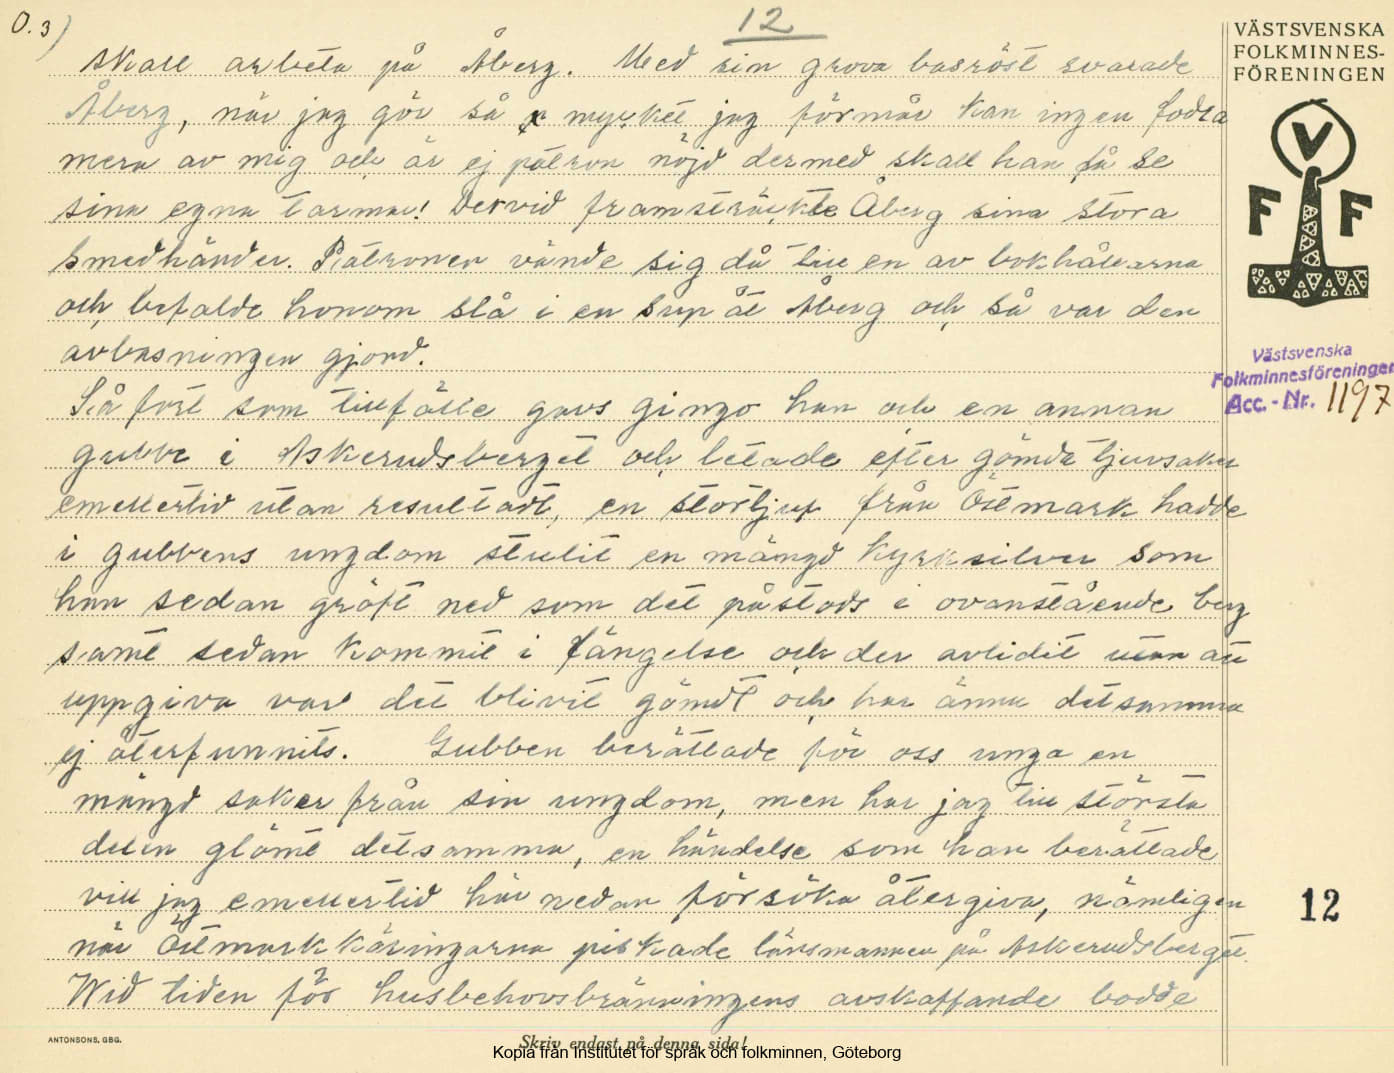 O. 3)
12
skall arbeta på Åberg. Med sin grova basröst svarade
Åberg, när jag gör så mycket jag förmår kan ingen fodra
mera av mig och är ej patron nöjd dermed skall han få se
sina egna tarmar! Dervid framsträckte Åberg sina stora
smedhänder. Patronen vände sig då till en av bokhållarna
och befalde honom slå i en sup åt Åberg och så var den
avbasningen gjord.
Så fort som tillfälle gavs gingo han och en annan
gubbe i Askerudsberget och letade efter gömda tjuvsaker
emellertid utan resultadt, en stortjuf från Östmark hadde
i gubbens ungdom stulit en mängd kyrksilver som
han sedan gräft ned som det påstods i ovanstående berg
samt sedan kommit i fängelse och der avlidit utan att
uppgiva var det blivit gömdt och har ännu detsamma
ej återfunnits. Gubben berättade för oss unga en
mängd saker från sin ungdom, men har jag till största
delen glömt detsamma, en händelse som han berättade
vill jag emellertid här nedan försöka återgiva, nämligen
när Östmarkkäringarna piskade länsmannen på Askerudsberget.
Wid tiden för husbehovsbränningens avskaffande bodde
VÄSTSVENSKA
FOLKMINNES-
FÖRENINGEN
V
F F
Västsvenska
Folkminnesföreningen
Acc. - Nr. 1197
12
ANTONSONS, GBG.
Skriv endast på denna sida!
Kopia från Institutet för språk och folkminnen, Göteborg